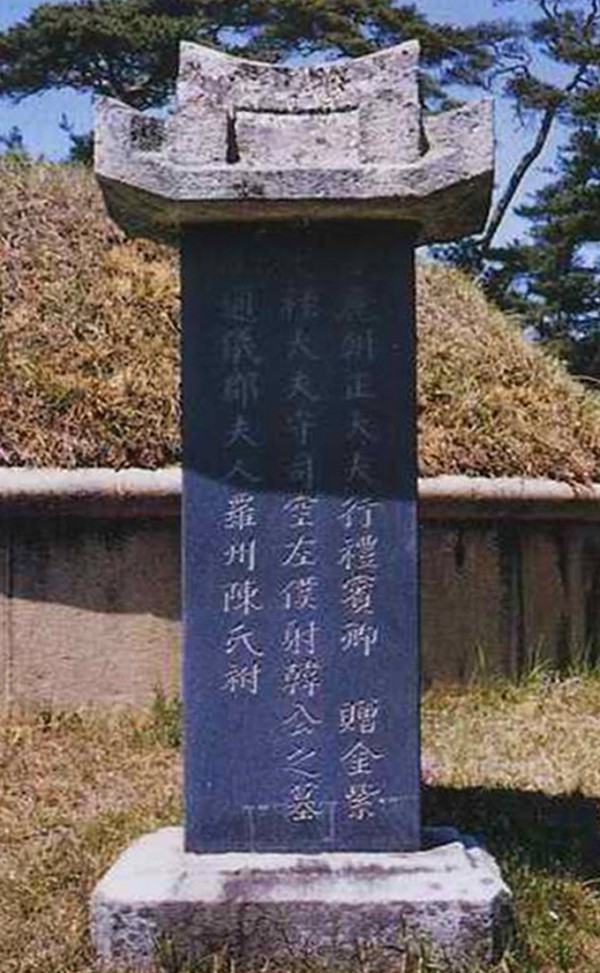 麗朝正大夫行禮賓卿 贈金紫
光祿大夫守司空左僕射韓公之墓
儀郡夫人羅州陳氏祔